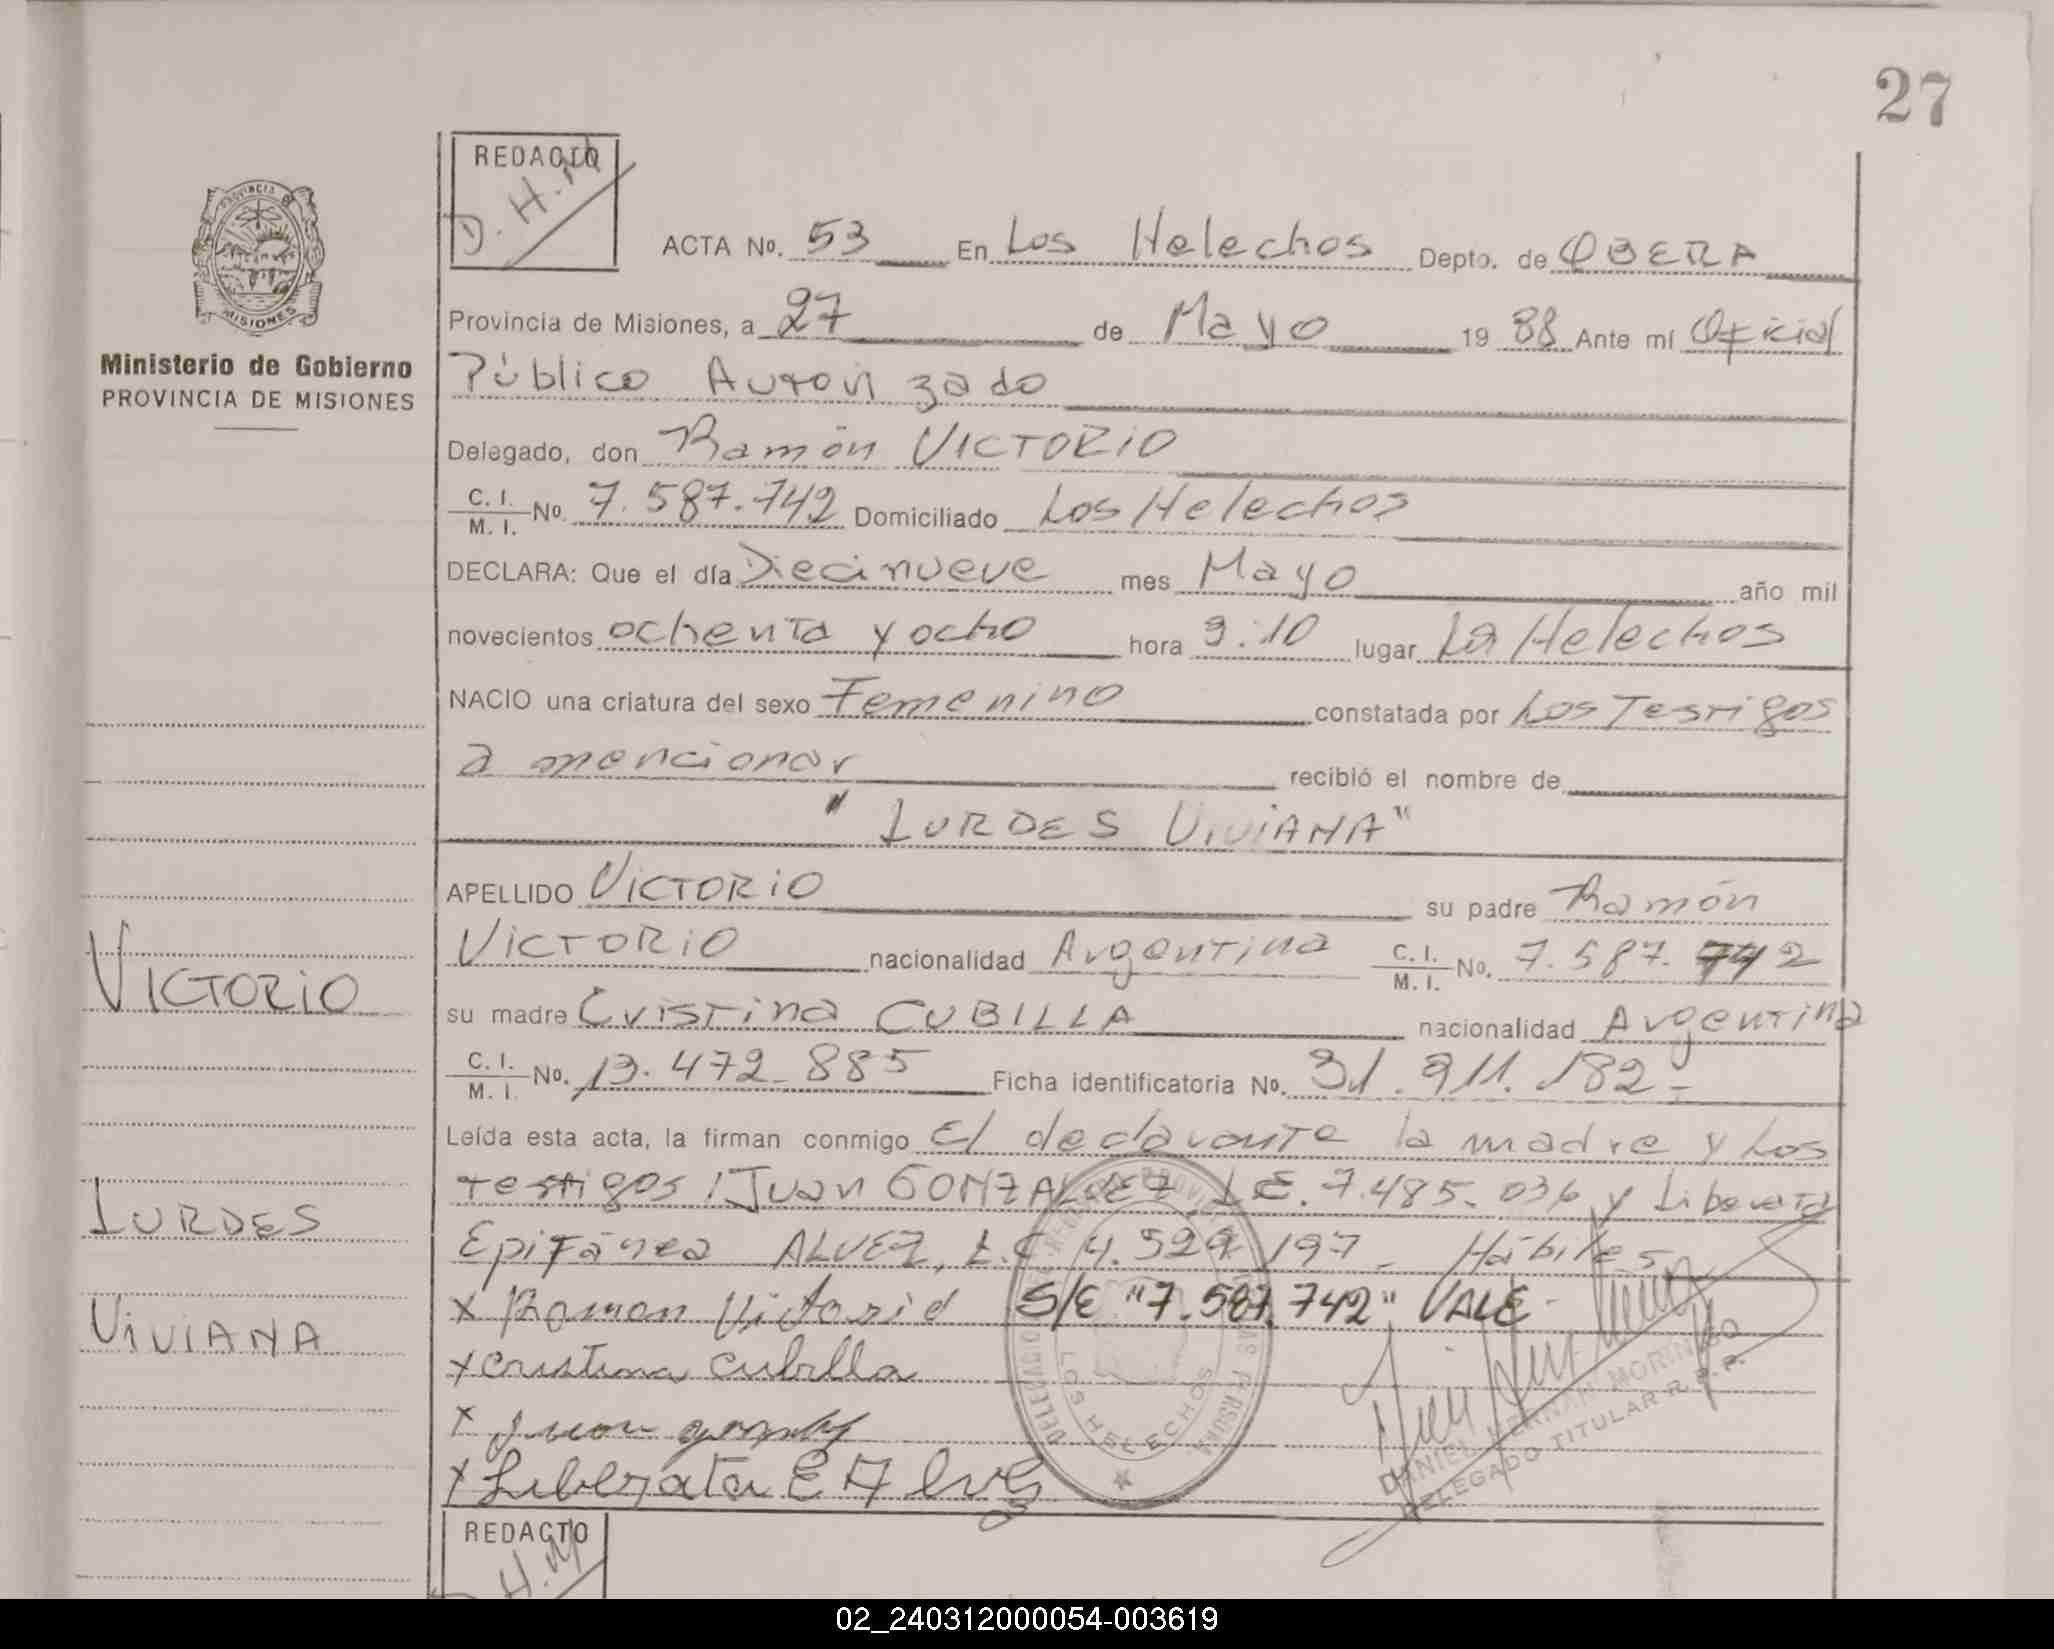 27
REDACTO
D. H. M
ACTA Nº. 53 En Los Helechos Depto. de OBERA
PROVINCIA DE
MISIONES
Provincia de Misiones, a 27 de Mayo 1988 Ante mí Oficial
Ministerio de Gobierno
PROVINCIA DE MISIONES
Público Autorizado
Delegado, don Ramón VICTORIO
C. I. / M. I. Nº. 7.587.742 Domiciliado Los Helechos
DECLARA: Que el día Diecinueve mes Mayo año mil
novecientos ochenta y ocho hora 9:10 lugar Los Helechos
NACIO una criatura del sexo Femenino constatada por Los Testigos
a mencionar recibió el nombre de
" LURDES VIVIANA "
APELLIDO VICTORIO su padre Ramón
VICTORIO nacionalidad Argentina C. I. / M. I. Nº. 7.587.742
VICTORIO
su madre Cristina CUBILLA nacionalidad Argentina
C. I. / M. I. Nº. 13.472.885 Ficha identificatoria Nº. 31.911.182-
Leída esta acta, la firman conmigo El declarante la madre y Los
testigos: Juan GONZALVEZ L.E. 7.485.036 y Liberata
LURDES
Epifánea ALVEZ, L.C 4.529.197- Hábiles
x Ramon Victorio S/E "7.587.742" VALE-
VIVIANA
x Cristina Cubilla
x Juan
x Liberata E Alvez
LOS HELECHOS
DANIEL HERNAN MORINIGO
DELEGADO TITULAR R.P.P.
REDACTO
H. M
02_240312000054-003619